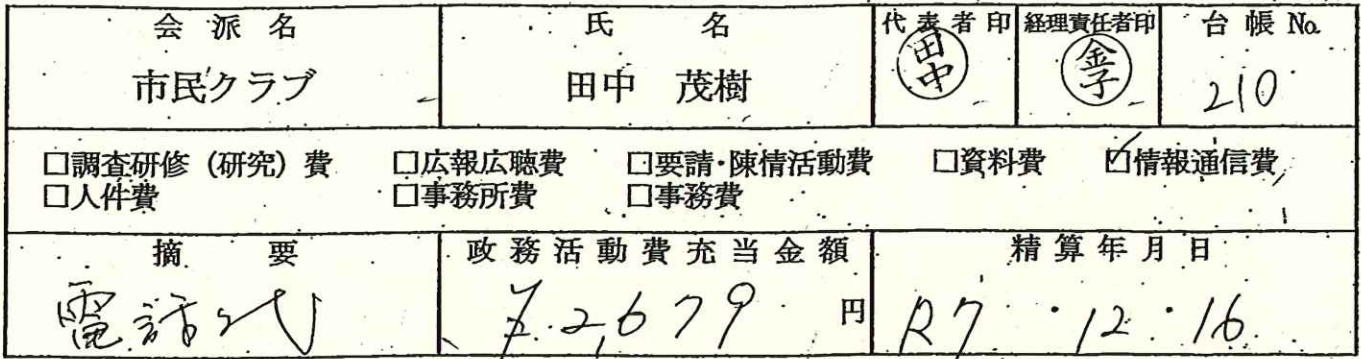 会派名 氏名 代表者印 経理責任者印 台帳No.
市民クラブ 田中 茂樹 田中 金子 210
□調査研修(研究)費 □広報広聴費 □要請・陳情活動費 □資料費 ☑情報通信費
□人件費 □事務所費 □事務費
摘要 政務活動費充当金額 精算年月日
電話代 ¥2,679 円 R7・12・16